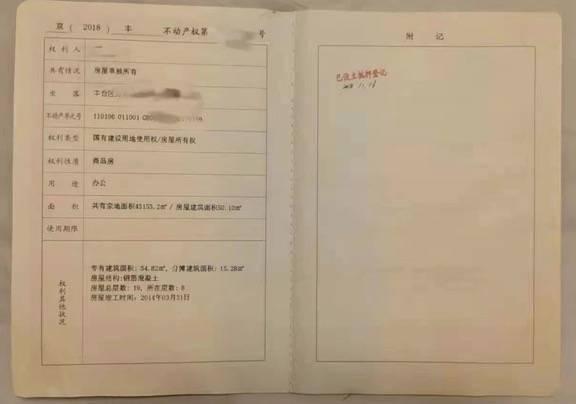 京( 2018 ) 丰 不动产权第 号
权利人
共有情况 房屋单独所有
坐落 丰台区
不动产单元号 110106 011001 GB0
权利类型 国有建设用地使用权/房屋所有权
权利性质 商品房
用途 办公
面积 共有宗地面积43155.2㎡ / 房屋建筑面积50.10㎡
使用期限
权利其他状况
专有建筑面积: 34.82㎡, 分摊建筑面积: 15.28㎡
房屋结构:钢筋混凝土
房屋总层数: 19, 所在层数: 8
房屋竣工时间: 2014年03月31日
附记
已设立抵押登记